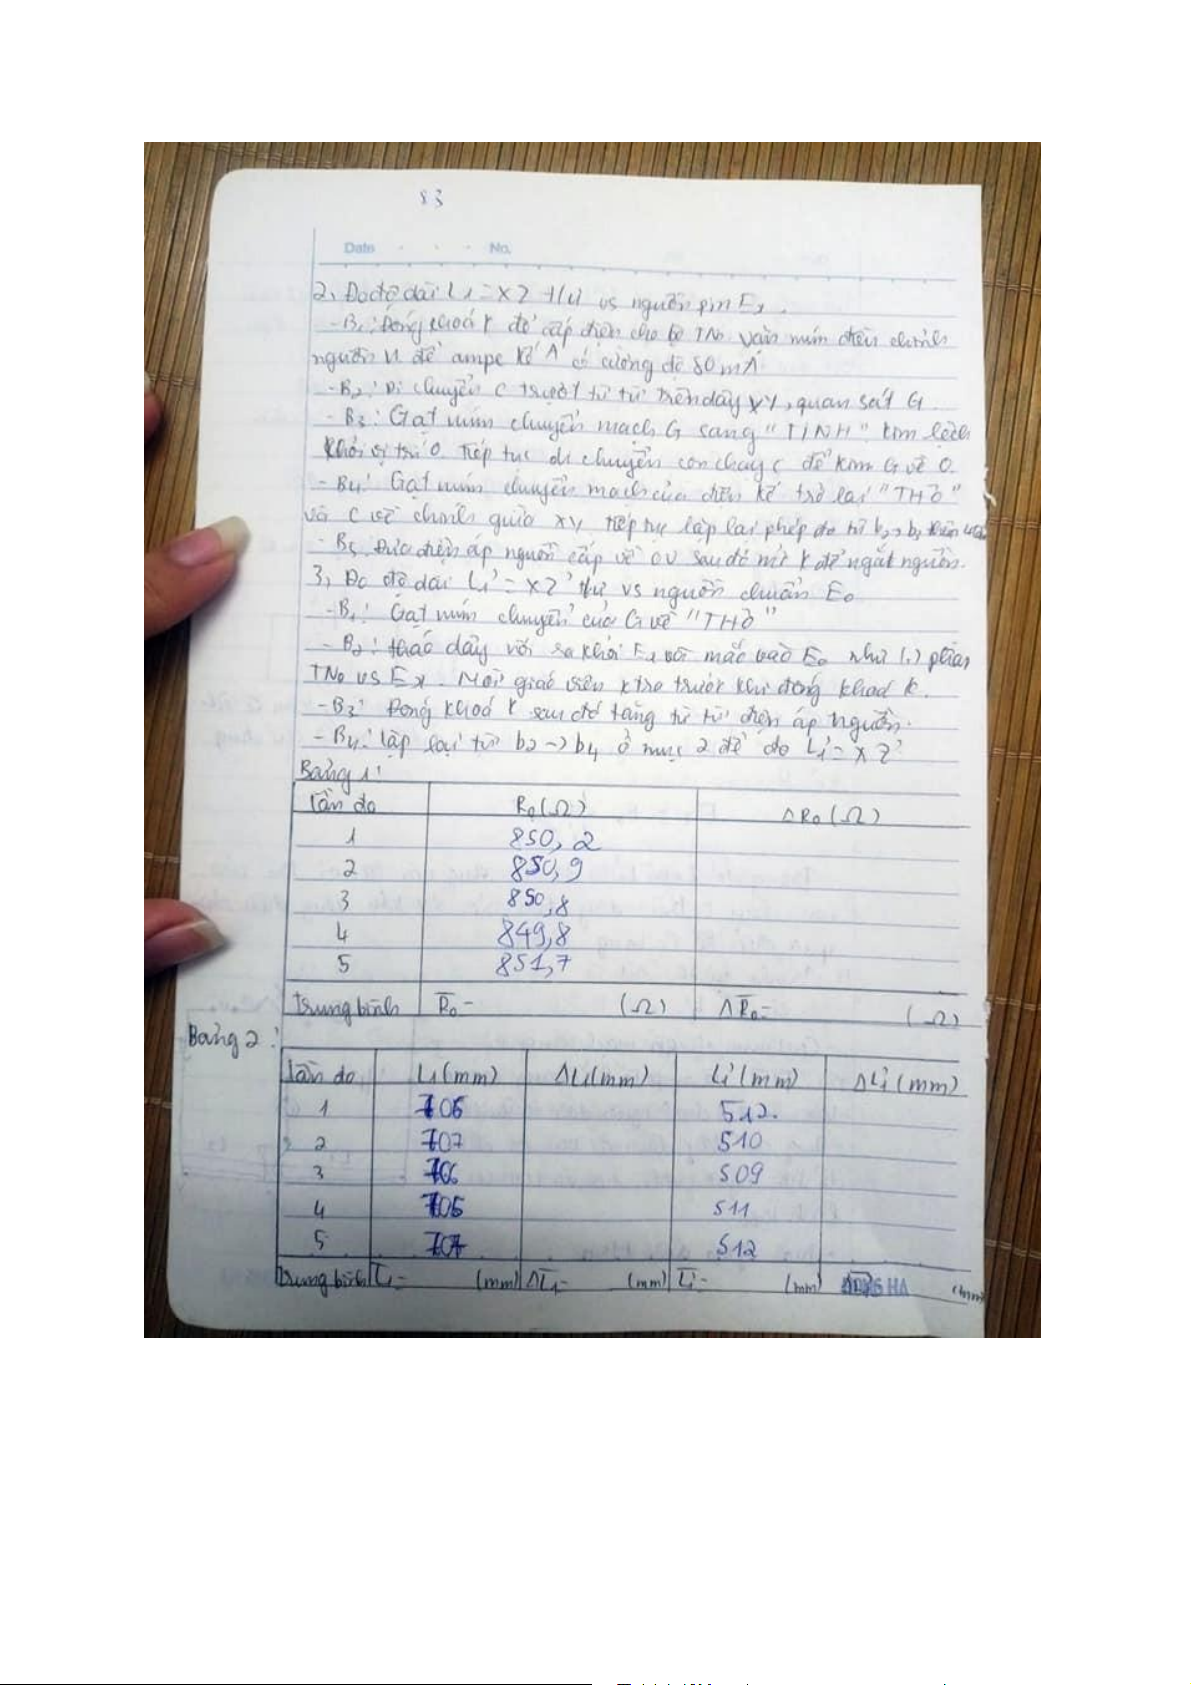 83
Date . . . No.
2, Đo độ dài L1 = XZ t/ứ vs nguồn pin Ex.
- B1: Đóng khoá K để cấp điện cho bộ TNo vặn núm điều chỉnh
nguồn U để ampe kế A có cường độ 80mA
- B2: Di chuyển C trượt từ từ trên dây XY, quan sát G.
- B3: Gạt núm chuyển mạch G sang "TINH" kim lệch
khỏi vị trí 0. Tiếp tục di chuyển con chạy C để kim G về 0.
- B4: Gạt núm chuyển mạch của điện kế trở lại "THÔ"
và C về chính giữa XY tiếp tục lặp lại phép đo từ b2->b3
- B5: Đưa điện áp nguồn cấp về 0V sau đó mở K để ngắt nguồn.
3, Đo độ dài L1' = XZ' t/ư vs nguồn chuẩn E0
- B1: Gạt núm chuyển của G về "THÔ"
- B2: tháo dây nối ra khỏi Ex rồi mắc vào E0 như (.) phần
TNo vs Ex. Mời giáo viên ktra trước khi đóng khoá K.
- B3: Đóng khoá K sau đó tăng từ từ điện áp nguồn.
- B4: lặp lại từ b2->b4 ở mục 2 để đo L1' = XZ'
Bảng 1:
lần đo R0(Ω) ΔR0(Ω)
1 850,2
2 850,9
3 850,8
4 849,8
5 851,7
trung bình R̅0= (Ω) ΔR̅0= (Ω)
Bảng 2:
lần đo L1(mm) ΔL1(mm) L1'(mm) ΔL1'(mm)
1 512.
2 707 510
3 706 509
4 511
5 707 512
Trung bình L̅1= (mm) ΔL̅1= (mm) L̅1'= (mm) (mm)